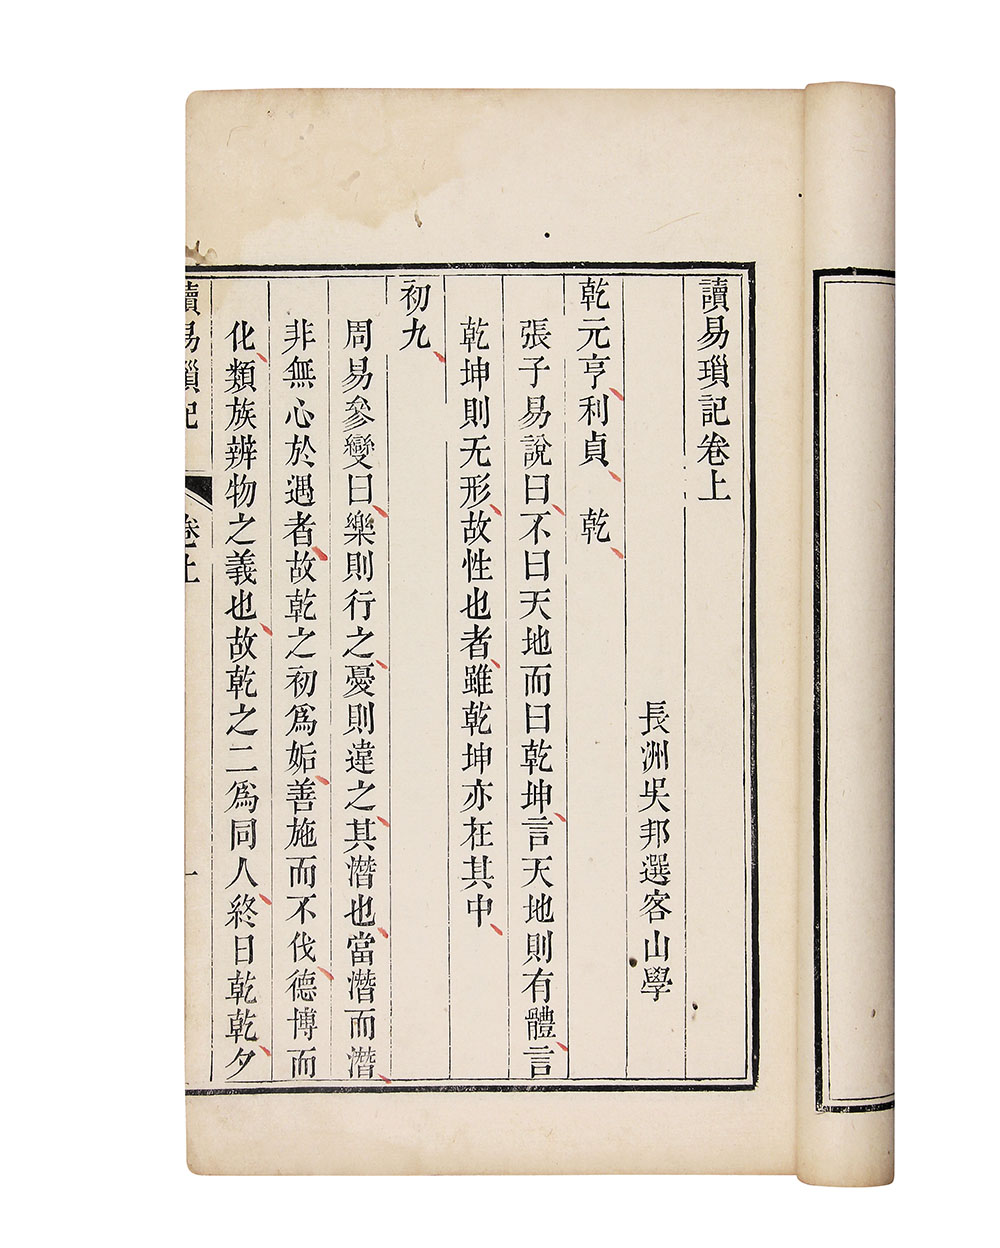 讀易瑣記卷上
長洲吳邦選客山學
乾元亨利貞　乾
張子易說曰不曰天地而曰乾坤言天地則有體言
乾坤則无形故性也者雖乾坤亦在其中
初九
周易參變曰樂則行之憂則違之其潛也當潛而潛
非無心於遇者故乾之初爲姤善施而不伐德博而
化類族辨物之義也故乾之二爲同人終日乾乾夕
讀易瑣記　卷上　一